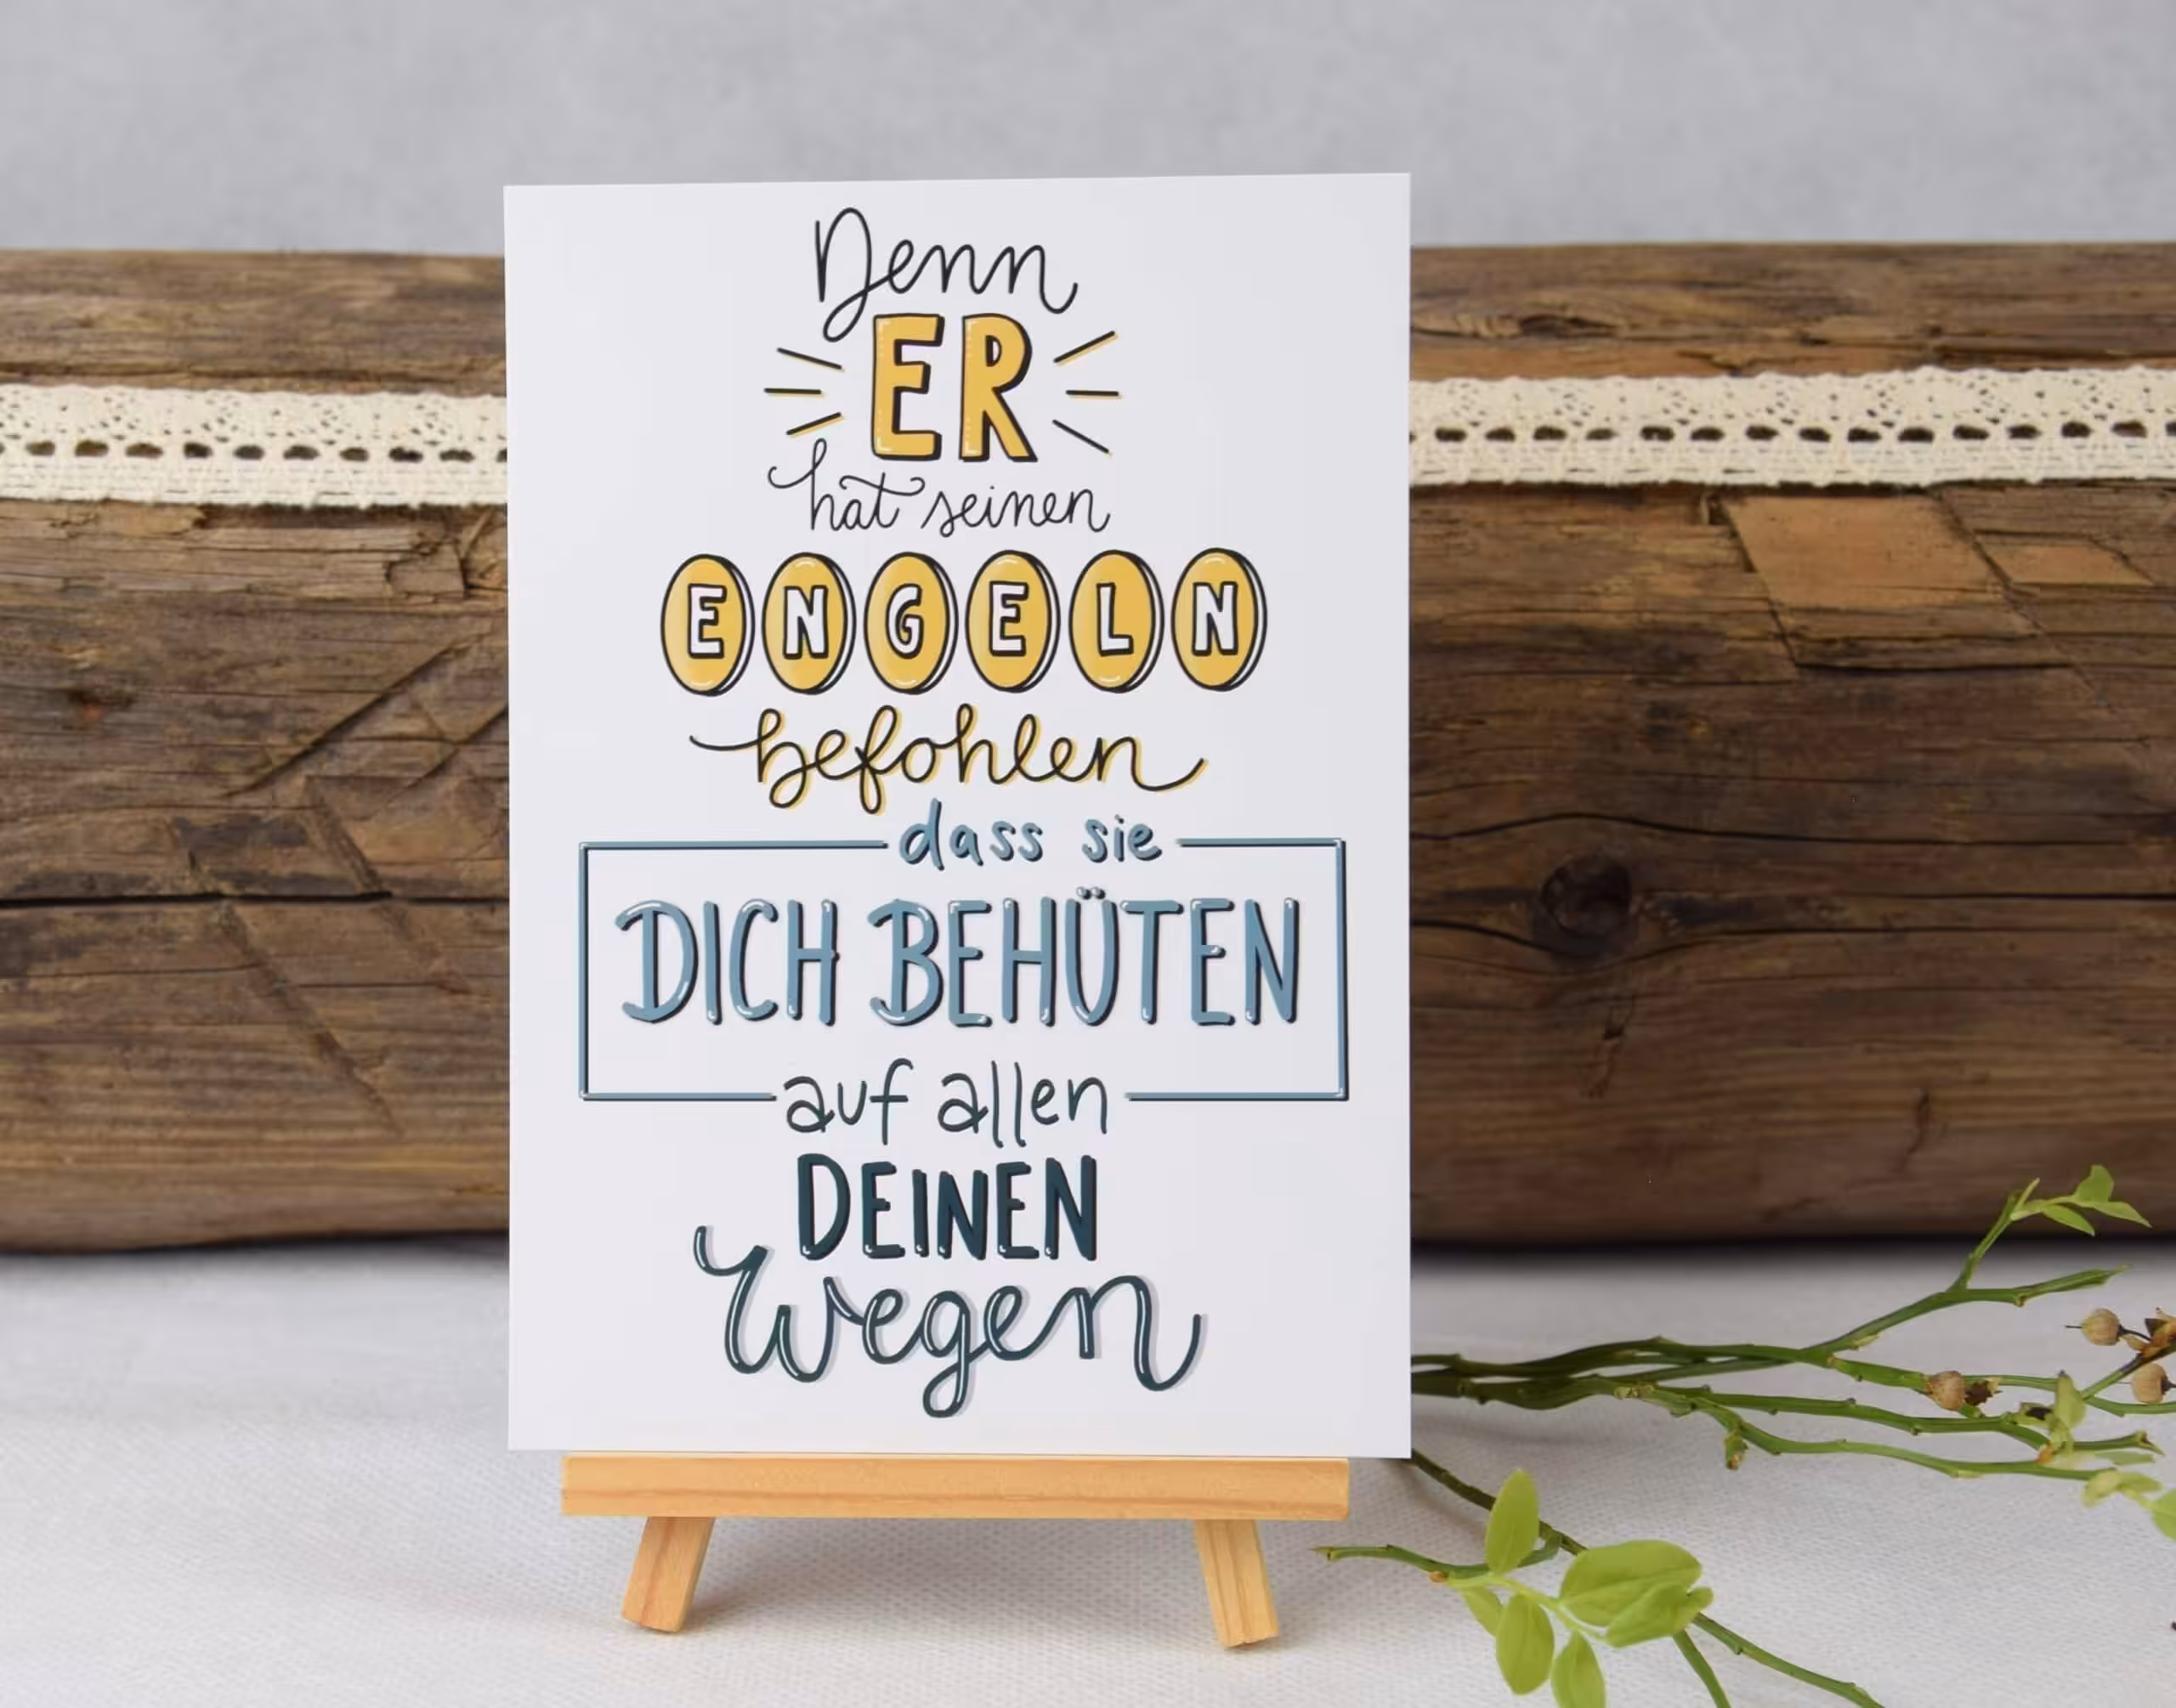 Denn
ER
hat seinen
ENGELN
befohlen
dass sie
DICH BEHÜTEN
auf allen
DEINEN
Wegen